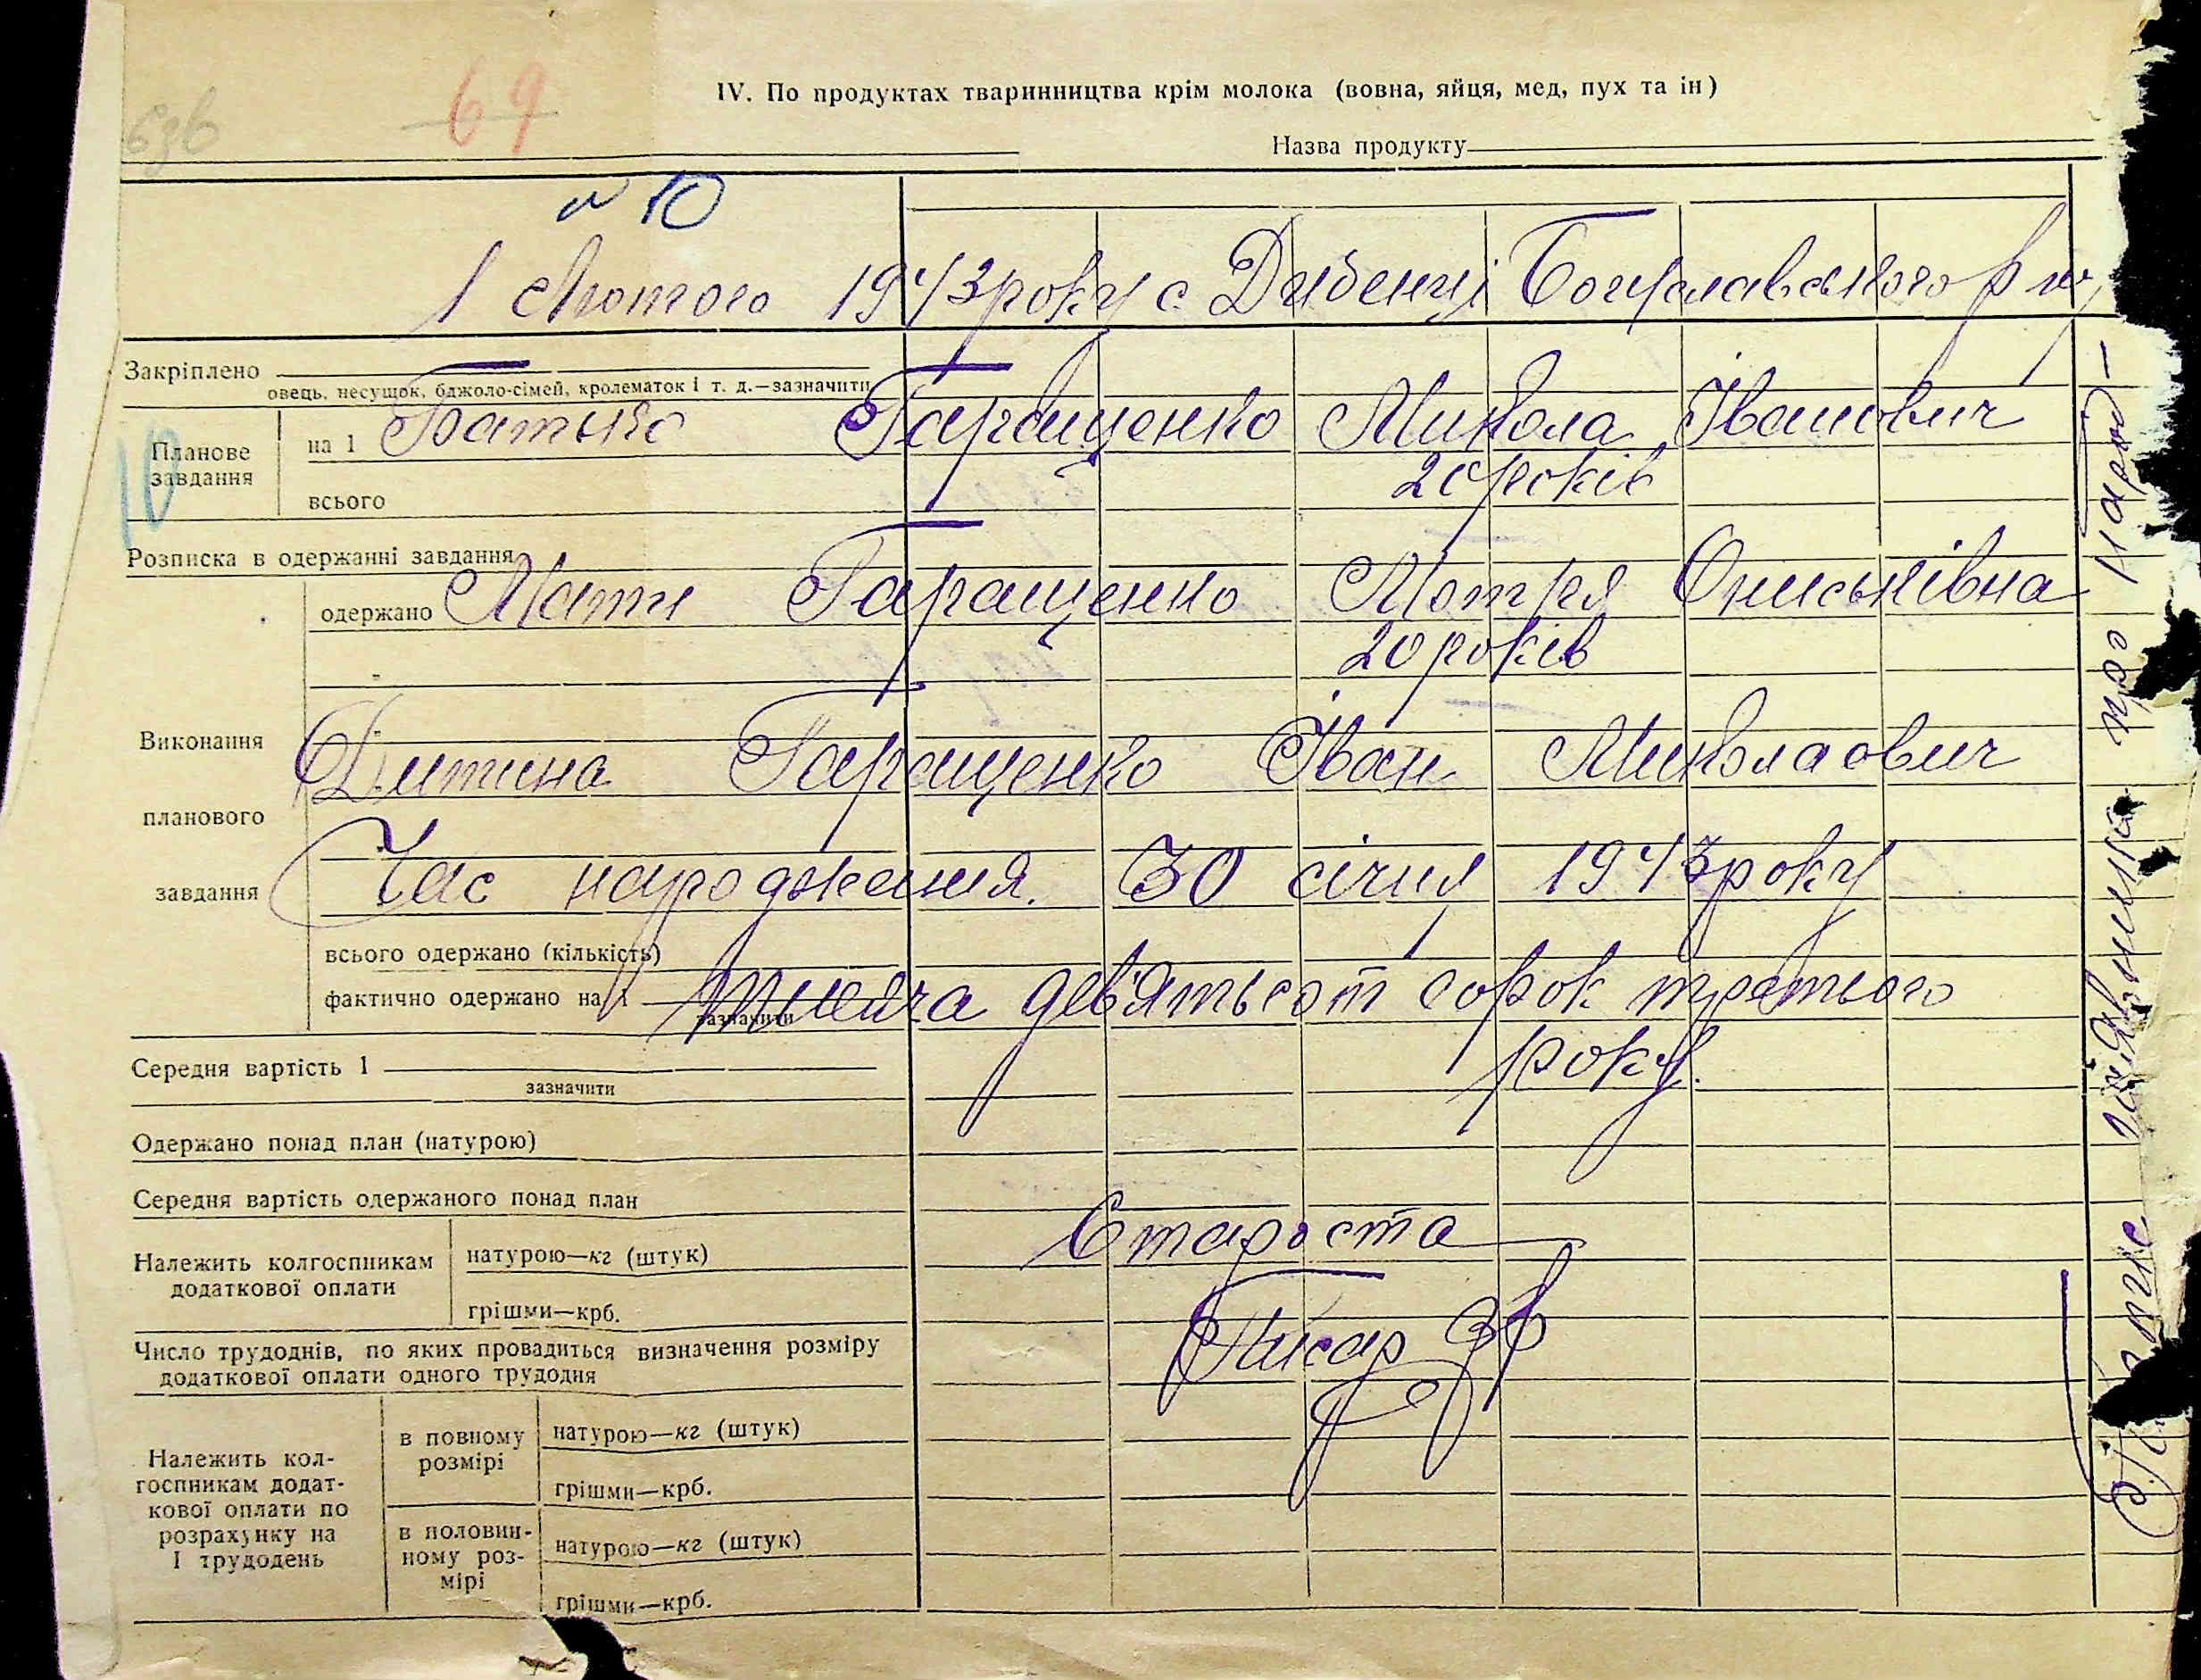 69
63в
IV. По продуктах тваринництва крім молока (вовна, яйця, мед, пух та ін)
Назва продукту
№ 10
1 Лютого 1943 року с. Дибенці Богуславського р-ну
Закріплено
овець, несушок, бджоло-сімей, кролематок і т. д.—зазначити
Батько Гаращенко Микола Іванович
Планове завдання
на 1
20 років
всього
10
Розписка в одержанні завдання
одержано
Мати Гаращенко Мотря Ониськівна
20 років
Виконання
Дитина Гаращенко Іван Миколаович
планового
Час народження. 30 січня 1943 року
завдання
всього одержано (кількість)
фактично одержано на 1
зазначити
тисяча дев'ятьсот сорок третього
року.
Середня вартість 1
зазначити
Одержано понад план (натурою)
Середня вартість одержаного понад план
Староста
Належить колгоспникам
додаткової оплати
натурою—кг (штук)
грішми—крб.
Писар
Число трудоднів, по яких провадиться визначення розміру
додаткової оплати одного трудодня
Належить кол-
госпникам додат-
кової оплати по
розрахунку на
1 трудодень
в повному
розмірі
натурою—кг (штук)
грішми—крб.
в половин-
ному роз-
мірі
натурою—кг (штук)
грішми—крб.
про народ-